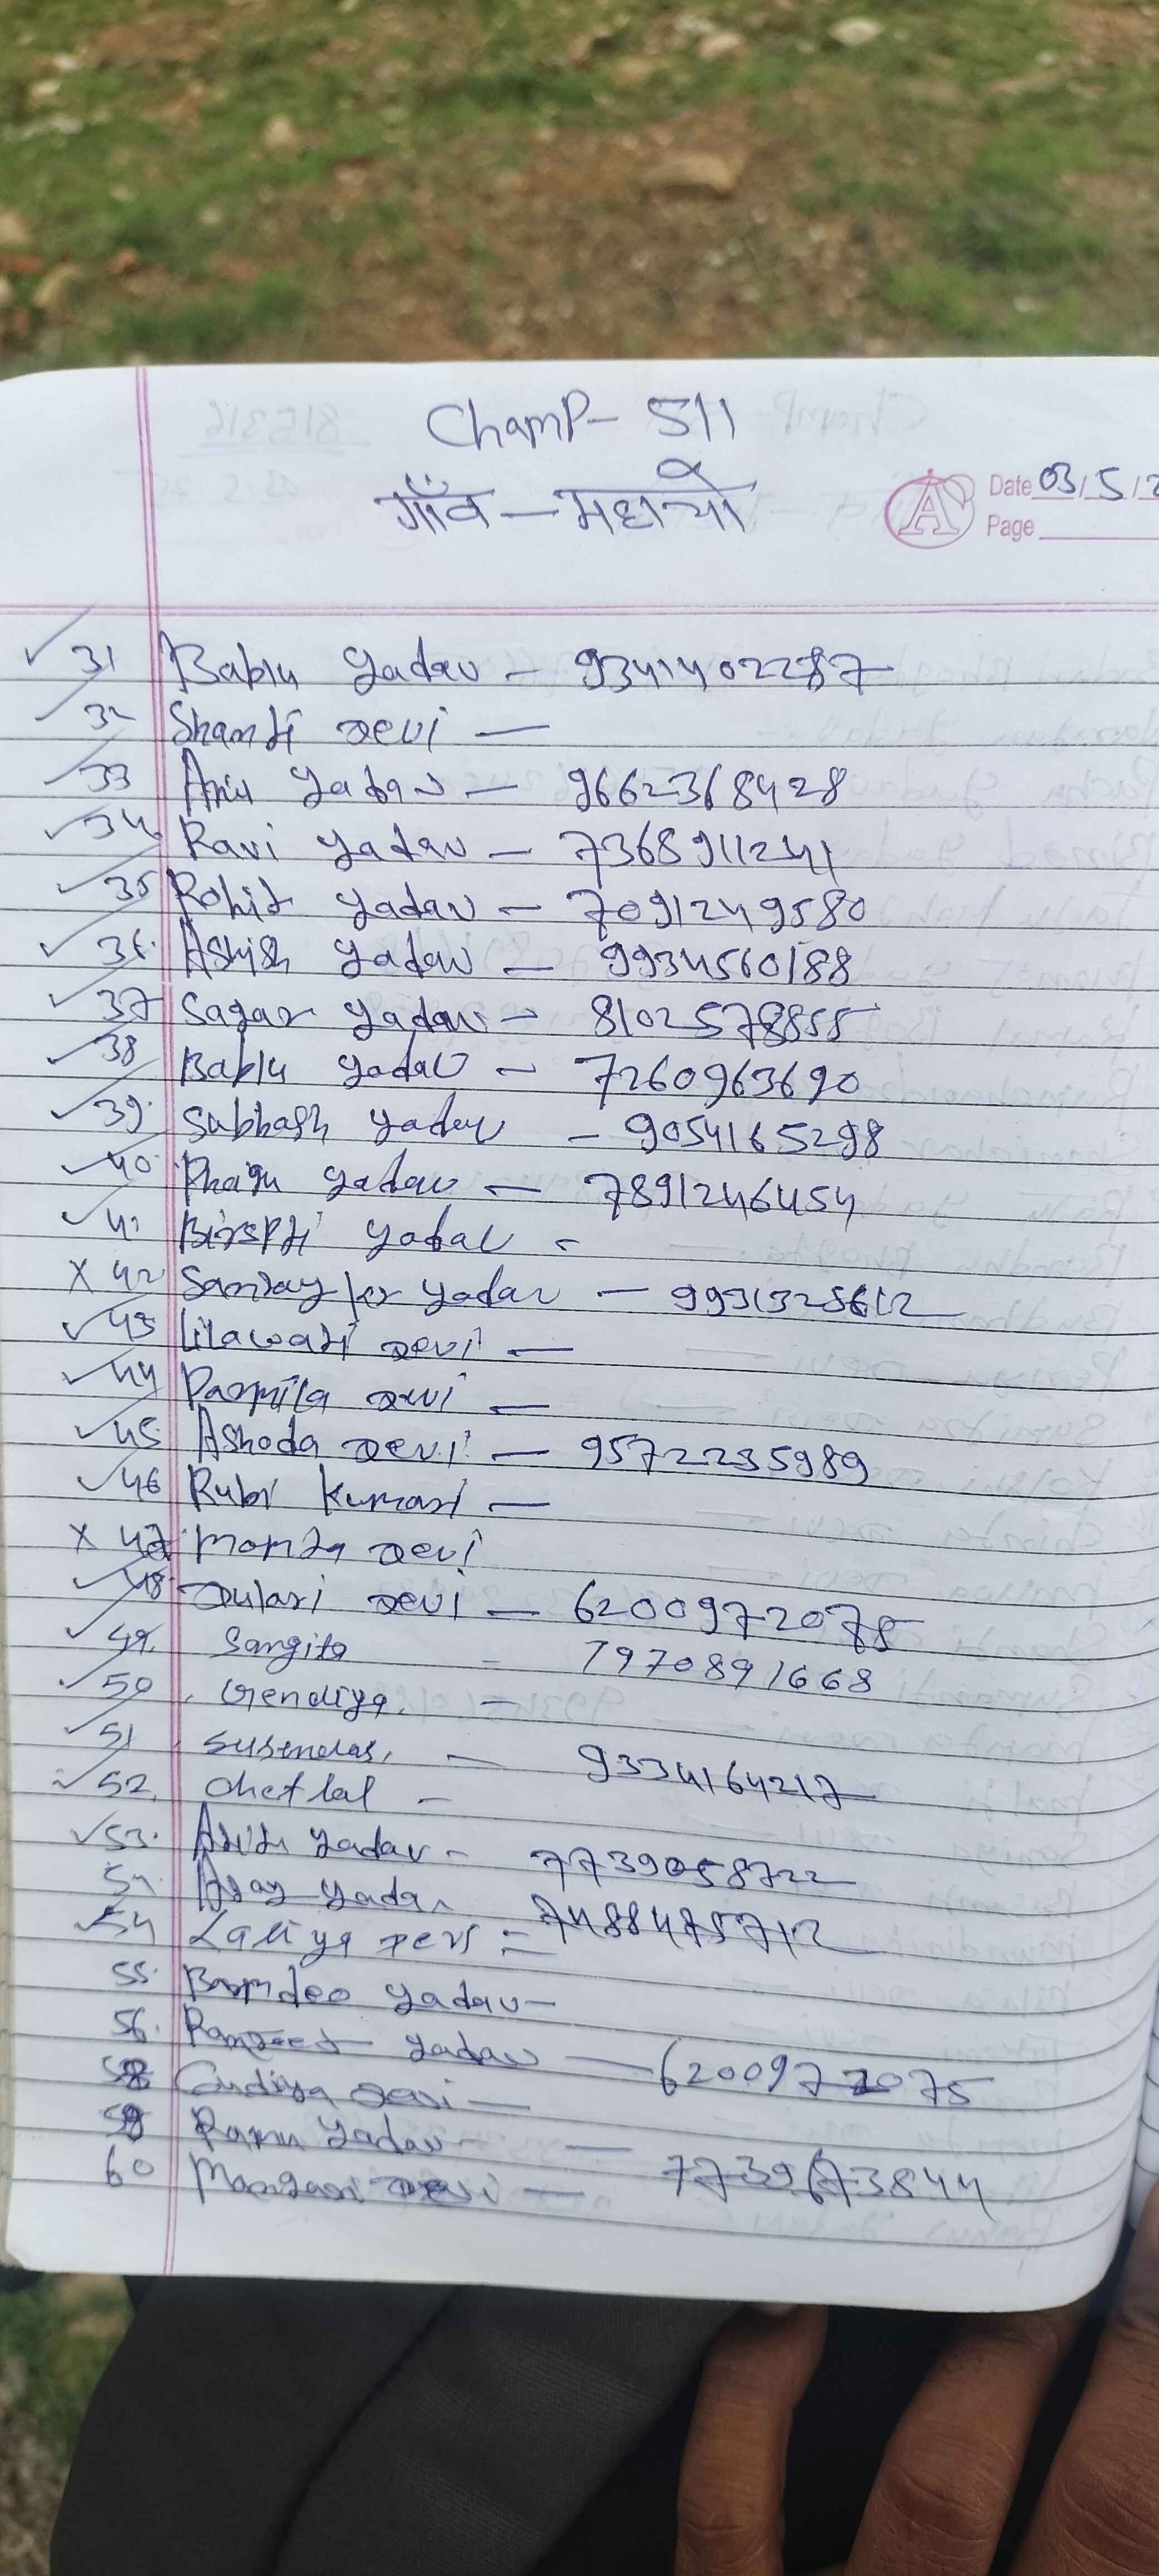 ChamP- 511
गाँव - महायो
Date 03/5/2
Page
✓ 31 Bablu Yadav - 9341402287
✓ 32 Shanti Devi -
✓ 33 Yadav - 9662368428
✓ 34 Ravi Yadav - 7368911241
✓ 35 Rohit Yadav - 7091249580
✓ 36. Ashish Yadav - 9934560188
✓ 37 Sagar Yadav - 8102578855
✓ 38 Bablu Yadav - 7260963690
✓ 39. Subhash Yadav - 9054165298
✓ 40 Yadav - 7891246454
✓ 41 Birspti Yadav -
X 42 Sanjay kr Yadav - 9931328612
✓ 43 Lilawati Devi -
✓ 44 Parmila Devi -
✓ 45 Ashoda Devi - 9572235989
✓ 46 Rubi Kumari -
X 47 Devi
✓ 48 Dulari Devi - 6200972075
✓ 49. Sangita - 7970891668
✓ 50 Gendiya. -
✓ 51 - 9334164217
✓ 52. Chetlal -
✓ 53. Yadav - 7739058722
54. Ajay Yadav 7488475712
✓ 54 Laliya Devi =
55. Yadav -
56. Ranjeet Yadav - 6200972075
58 Devi -
59 Yadav -
60 Devi - 7739673844